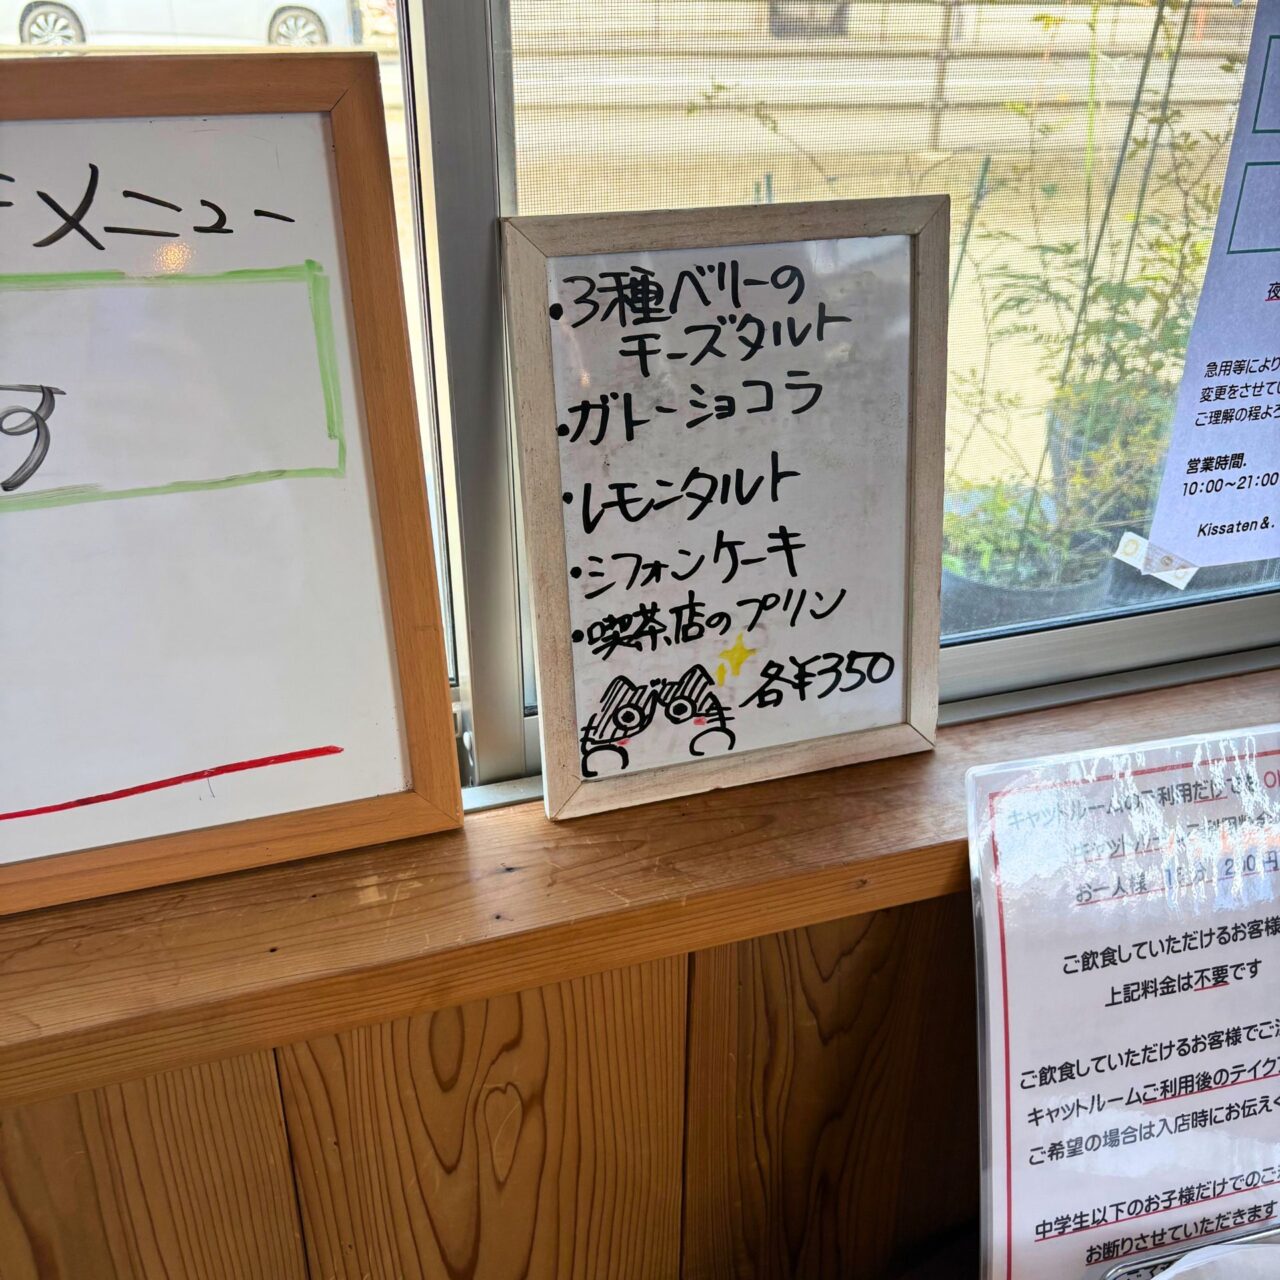 メニュー
す
・3種ベリーの
チーズタルト
・ガトーショコラ
・レモンタルト
・シフォンケーキ
・喫茶店のプリン
各¥350
夜
急用等により
変更をさせてい
ご理解の程よろ
営業時間.
10:00～21:00
Kissaten &.
キャットルームのご利用だけでも OK
キャットルームご利用料金
お一人様
ご飲食していただけるお客様
上記料金は不要です
ご飲食していただけるお客様でご注
キャットルームご利用後のテイクア
ご希望の場合は入店時にお伝えく
中学生以下のお子様だけでのご
お断りさせていただきます